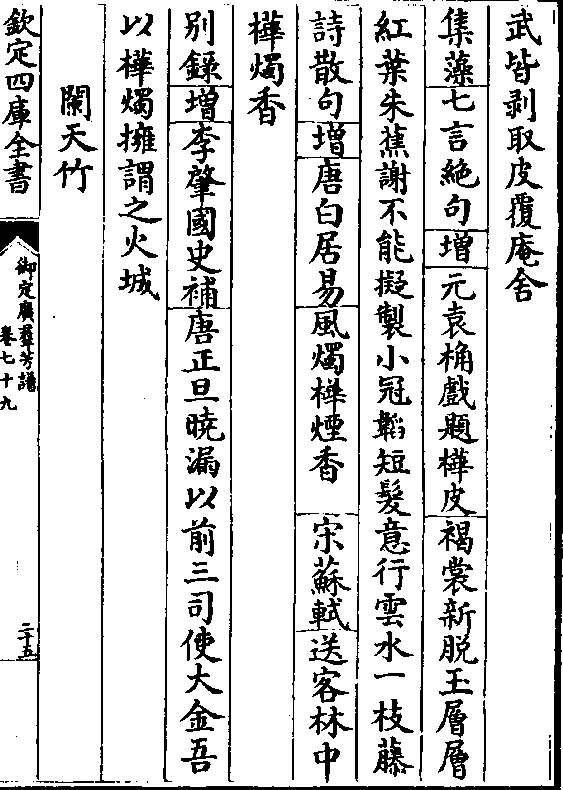 武皆剥取皮覆庵舍
集藻七言絶句增元袁桷戲題樺皮褐裳新脱玉層層
紅葉朱蕉謝不能擬製小冠韜短髮意行雲水一枝藤
詩散句增唐白居易風燭樺煙香 宋蘇軾送客林中
樺燭香
别録增李肇國史補唐正旦曉漏以前三司使大金吾
以樺燭擁謂之火城
闌天竹
欽定四庫全書
御定廣羣芳譜
卷七十九
二十五